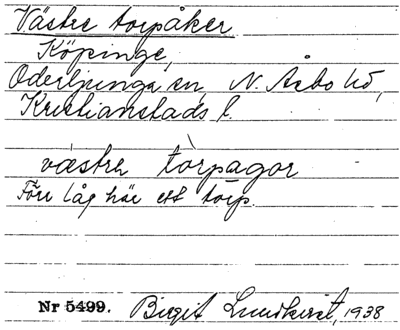 Västre torpåker
Köpinge,
Oderljunga sn, N. Åsbo hd,
Kristianstads l.
västrə torpagər
Förr låg här ett torp.
Nr 5499. Birgit Lundkvist, 1938